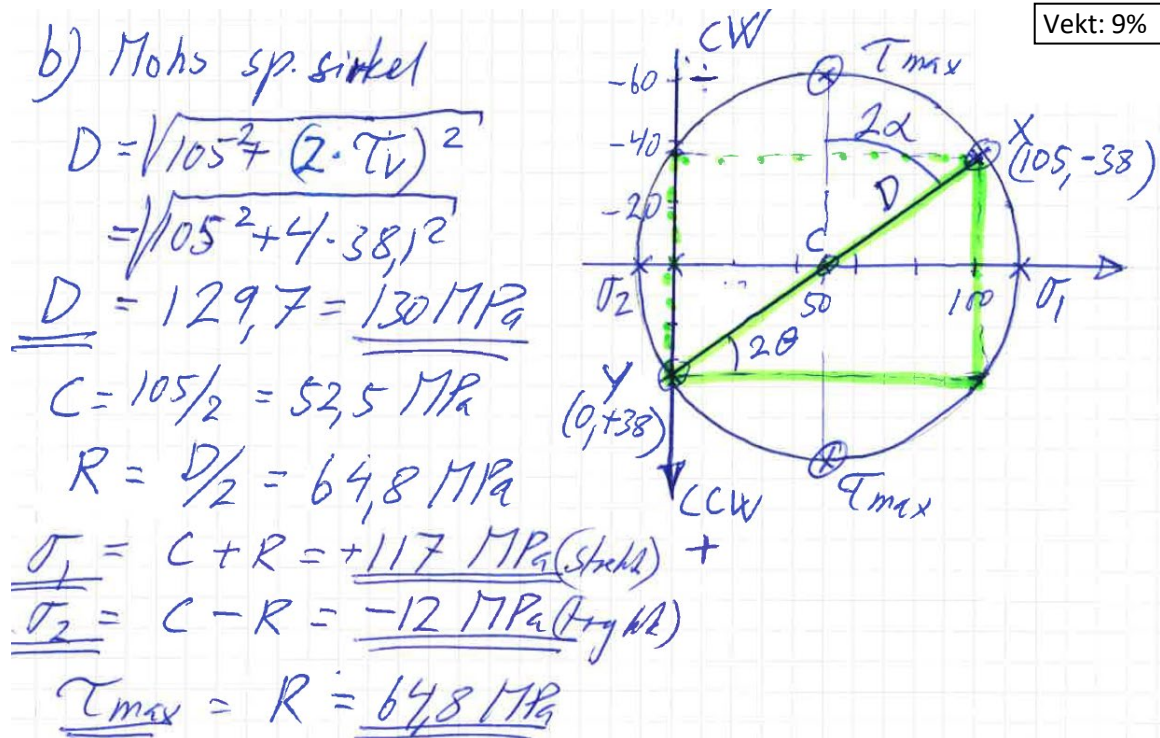 Vekt: 9%
b) Mohs sp. sirkel
D = √105² + (2 · τv)²
= √105² + 4 · 38,1²
D = 129,7 = 130 MPa
C = 105/2 = 52,5 MPa
R = D/2 = 64,8 MPa
σ1 = C + R = +117 MPa (strekk)
σ2 = C − R = −12 MPa (trykk)
τmax = R = 64,8 MPa
CW
÷
τmax
-60
-40
-20
2α
X
(105, -38)
D
C
σ2
50
100
σ1
2θ
Y
(0, +38)
CCW
τmax
+